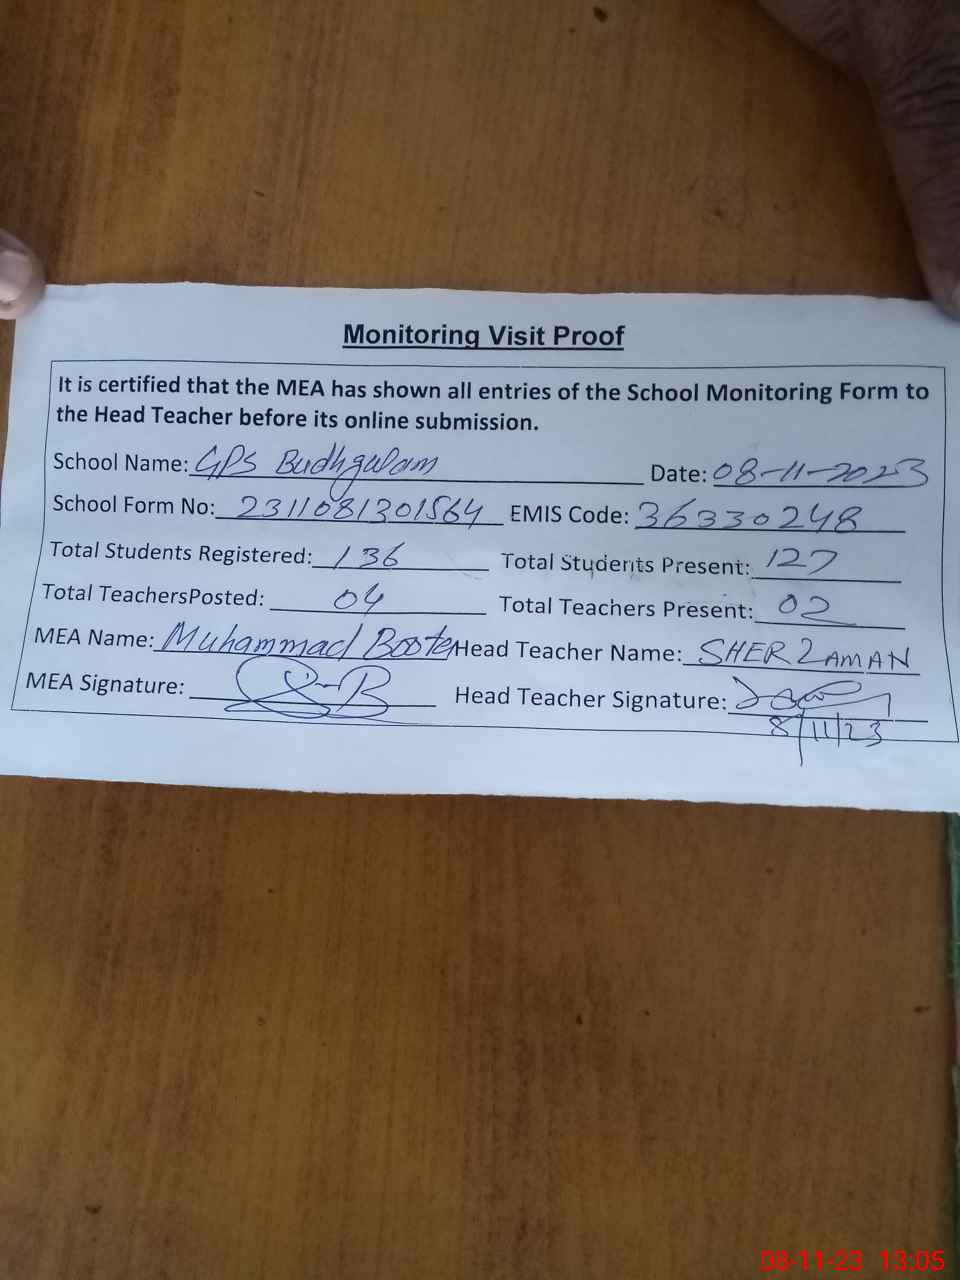 Monitoring Visit Proof
It is certified that the MEA has shown all entries of the School Monitoring Form to
the Head Teacher before its online submission.
School Name: GPS Budhgulam Date: 08-11-2023
School Form No: 2311081301564 EMIS Code: 36330248
Total Students Registered: 136 Total Students Present: 127
Total TeachersPosted: 04 Total Teachers Present: 02
MEA Name: Muhammad Boota Head Teacher Name: SHER ZAMAN
MEA Signature: Head Teacher Signature:
8/11/23
08-11-23 13:05